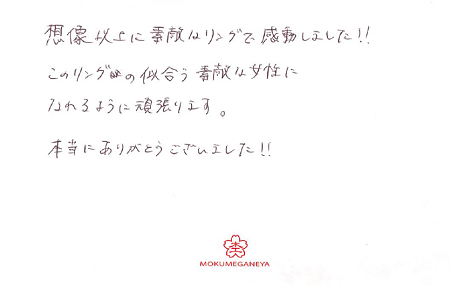 想像以上に素敵なリングで感動しました!!
このリングの似合う素敵な女性に
なれるように頑張ります。
本当にありがとうございました!!
MOKUMEGANEYA